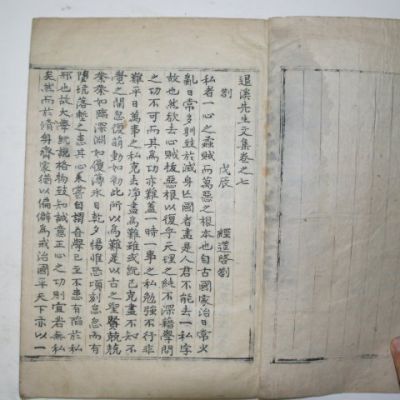 退溪先生文集卷之七
箚
戊辰 經筵啓箚
私者一心之蟊賊而萬惡之根本也自古國家治日常少
亂日常多馴致於滅身亡國者盡是人君不能去一私字
故也然欲去心賊拔惡根以復乎天理之純不深藉學問
之功不可而其爲功亦難蓋一時一事之私勉强不行非
難平日萬事之私克去淨盡爲難雖或旣已克盡不知不
覺之間忽復萌動如初此所以爲難是以古之聖賢兢兢
業業如臨深淵如履薄氷日乾夕惕惟恐頃刻怠忽而有
墮坑落塹之患其心未嘗自謂吾學已至不患有陷於私
邪也故大學旣說格物致知誠意正心之功則宜若無私
矣然而於修身齊家猶以偏僻爲戒治國平天下亦以一